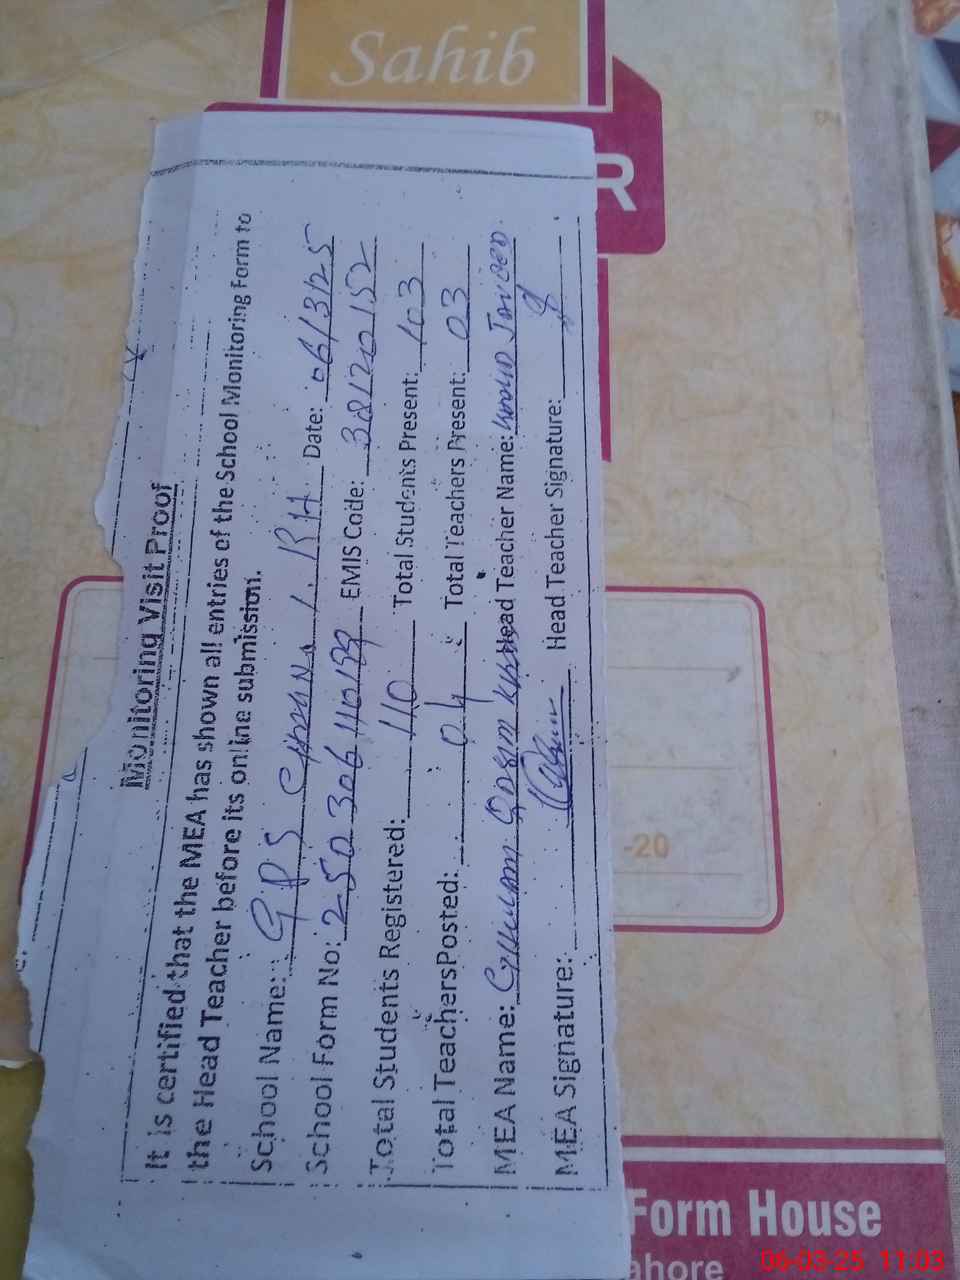 Sahib
R
Monitoring Visit Proof
It is certified that the MEA has shown all entries of the School Monitoring Form to
the Head Teacher before its online submission.
School Name: GPS RH Date: 06/3/25
School Form No: 250306110199 EMIS Code: 38120152
Total Students Registered: 110 Total Students Present: 103
Total TeachersPosted: 04 Total Teachers Present: 03
MEA Name: Head Teacher Name:
MEA Signature: Head Teacher Signature:
-20
Form House
ahore
06-03-25 11:03